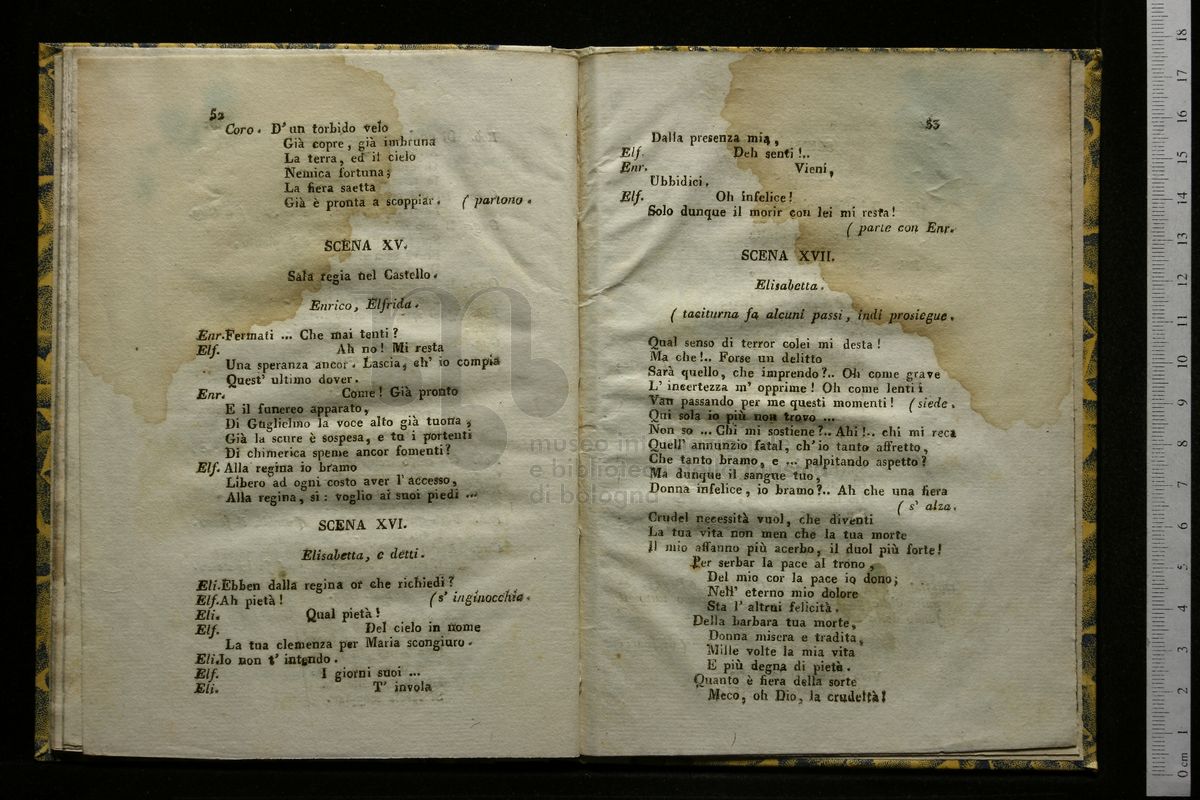 52
Coro. D' un torbido velo
Già copre, già imbruna
La terra, ed il cielo
Nemica fortuna;
La fiera saetta
Già è pronta a scoppiar. ( partono.
SCENA XV.
Sala regia nel Castello.
Enrico, Elfrida.
Enr. Fermati ... Che mai tenti ?
Elf. Ah no! Mi resta
Una speranza ancor. Lascia, ch' io compia
Quest' ultimo dover.
Enr. Come! Già pronto
E il funereo apparato,
Di Guglielmo la voce alto già tuona,
Già la scure è sospesa, e tu i portenti
Di chimerica speme ancor fomenti?
Elf. Alla regina io bramo
Libero ad ogni costo aver l' accesso,
Alla regina, sì: voglio ai suoi piedi ...
SCENA XVI.
Elisabetta, e detti.
Eli. Ebben dalla regina or che richiedi?
Elf. Ah pietà! (s' inginocchia.
Eli. Qual pietà!
Elf. Del cielo in nome
La tua clemenza per Maria scongiuro.
Eli. Io non t' intendo.
Elf. I giorni suoi ...
Eli. T' invola
53
Dalla presenza mia,
Elf. Deh senti!..
Enr. Vieni,
Ubbidici.
Elf. Oh infelice!
Solo dunque il morir con lei mi resta!
( parte con Enr.
SCENA XVII.
Elisabetta.
( taciturna fa alcuni passi, indi prosiegue.
Qual senso di terror colei mi desta!
Ma che!.. Forse un delitto
Sarà quello, che imprendo?.. Oh come grave
L' incertezza m' opprime! Oh come lenti i
Van passando per me questi momenti! (siede.
Qui sola io più non trovo ...
Non so ... Chi mi sostiene?.. Ahi!.. chi mi reca
Quell' annunzio fatal, ch' io tanto affretto,
Che tanto bramo, e ... palpitando aspetto?
Ma dunque il sangue tuo,
Donna infelice, io bramo?.. Ah che una fiera
( s' alza.
Crudel necessità vuol, che diventi
La tua vita non men che la tua morte
Il mio affanno più acerbo, il duol più forte!
Per serbar la pace al trono,
Del mio cor la pace io dono;
Nell' eterno mio dolore
Sta l' altrui felicità.
Della barbara tua morte,
Donna misera e tradita,
Mille volte la mia vita
E più degna di pietà.
Quanto è fiera della sorte
Meco, oh Dio, la crudeltà!
museo
e biblioteca
di bologna
0 cm 1 2 3 4 5 6 7 8 9 10 11 12 13 14 15 16 17 18